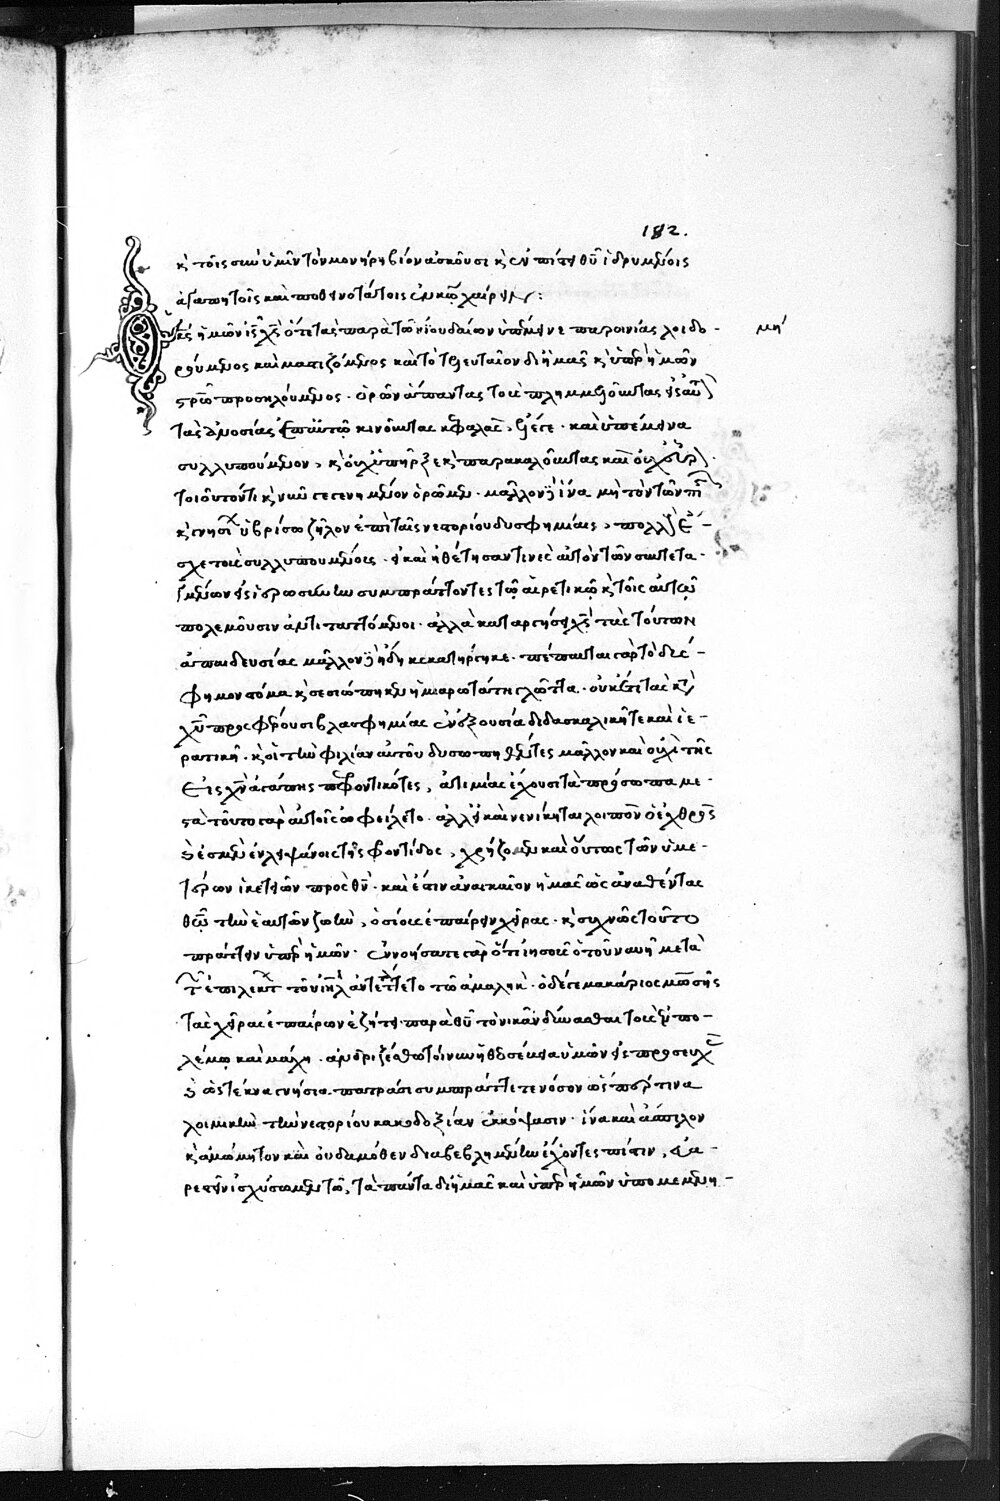 182.
κ τοῖς σὺν ὑμῖν τὸν μονήρη βίον ἀσκοῦσι κ ἐν πίστει θῦ ἱδρυμένοις
ἀγαπητοῖς καὶ ποθεινοτάτοις ἐν κω χαίρειν:
κς ἡμῶν ις χς ὅτε τὰς παρὰ τῶν ἰουδαίων ὑπέμεινε παροινίας λοιδο-
μη
ρούμενος καὶ μαστιζόμενος καὶ τὸ τελευταῖον δι ἡμᾶς κ ὑπὲρ ἡμῶν
στρω προσηλούμενος · ὁρῶν ἅπαντας τοὺς πλημμελοῦντας εἰς αὐτ
τὰς ἀνοσίας ἐπ αὐτῷ κινοῦντας κεφαλὰς, ἔλεγε · καὶ ὑπέμεινα
συλλυπούμενον, κ οὐχ ὑπῆρξε κ παρακαλοῦντας καὶ οὐχ εὗρον ·
τοιοῦτόν τι κ νῦν γεγενημένον ὁρῶμεν · μᾶλλον ἵνα μὴ τὸν τῶν
κ γνησι ὑβρίσω ζῆλον ἐπὶ ταῖς νεστορίου δυσφημίαις, πολλ ἔ-
σχε τοὺς συλλυπουμένους · εἰ καὶ ἠθέτησάν τινες αὐτὸν τῶν συντεταγ-
μένων εἰς ἱερωσύνην συμπράττοντες τῷ αἱρετικῷ κ τοῖς αὐτῷ
πολεμοῦσιν ἀντιταττόμενοι · ἀλλὰ καταργήσει χς τὰς τούτων
ἀπαιδευσίας μᾶλλον ἤδη κ κατήργηκε · πέπαυται γὰρ τὸ δύσ-
φημον στόμα κ σεσιώπηκεν ἡ μιαρωτάτη γλῶττα · οὐκέτι τὰς κτ
χῦ προσφέρουσι βλασφημίας ἐν ἐξουσίᾳ διδασκαλικῇ τε καὶ ἱε-
ρατικῇ · κ οἱ τὴν φιλίαν αὐτοῦ δυσωπηθέντες μᾶλλον καὶ οὐχὶ τῆς
εἰς χν ἀγάπης πεφροντικότες, ἀτιμίας ἔχουσι τὰ πρόσωπα με-
στὰ τοῦτο γὰρ αὐτοῖς ὠφείλετο · ἀλλ εἰ καὶ νενίκηται λοιπὸν ὁ ἐχθρὸς
κ ἐσμὲν ἐν λειψάνοις τῆς φροντίδος, χρήζομεν καὶ οὕτως τῶν ὑμε-
τέρων ἱκετειῶν πρὸς θν · καὶ ἔστιν ἀναγκαῖον ἡμᾶς ὡς ἀναθέντας
θω τὴν ἑαυτῶν ζωὴν, ὁσίους ἐπαίρειν χεῖρας · κ συχνῶς τοῦτο
πράττειν ὑπὲρ ἡμῶν · ἐννοήσατε γὰρ ὅτι ἰησοῦς ὁ τοῦ ναυῆ μετὰ
τ ἐπιλεκτ τοῦ ιηλ ἀντετάττετο τῷ ἀμαλήκ · ὁ δέ γε μακάριος μωσῆς
τὰς χεῖρας ἐπαίρων ἐζήτει παρὰ θῦ τὸ νικᾶν δύνασθαι τοὺς ἐν πο-
λέμῳ καὶ μάχῃ · ἀνδριζέσθω τοίνυν ἡ θεοσέβεια ὑμῶν εἰς προσευχ
κ ὡς τέκνα γνήσια πατράσι συμπράττετε νόσον ὥσπερ τινὰ
λοιμικὴν τὴν νεστορίου κακοδοξίαν ἐκκόψασιν · ἵνα καὶ ἄσπιλον
κ ἀμώμητον καὶ οὐδαμόθεν διαβεβλημένην ἔχοντες πίστιν, εὐα-
ρεστεῖν ἰσχύσωμεν τῷ, τὰ πάντα δι ἡμᾶς καὶ ὑπὲρ ἡμῶν ὑπομεμενη-